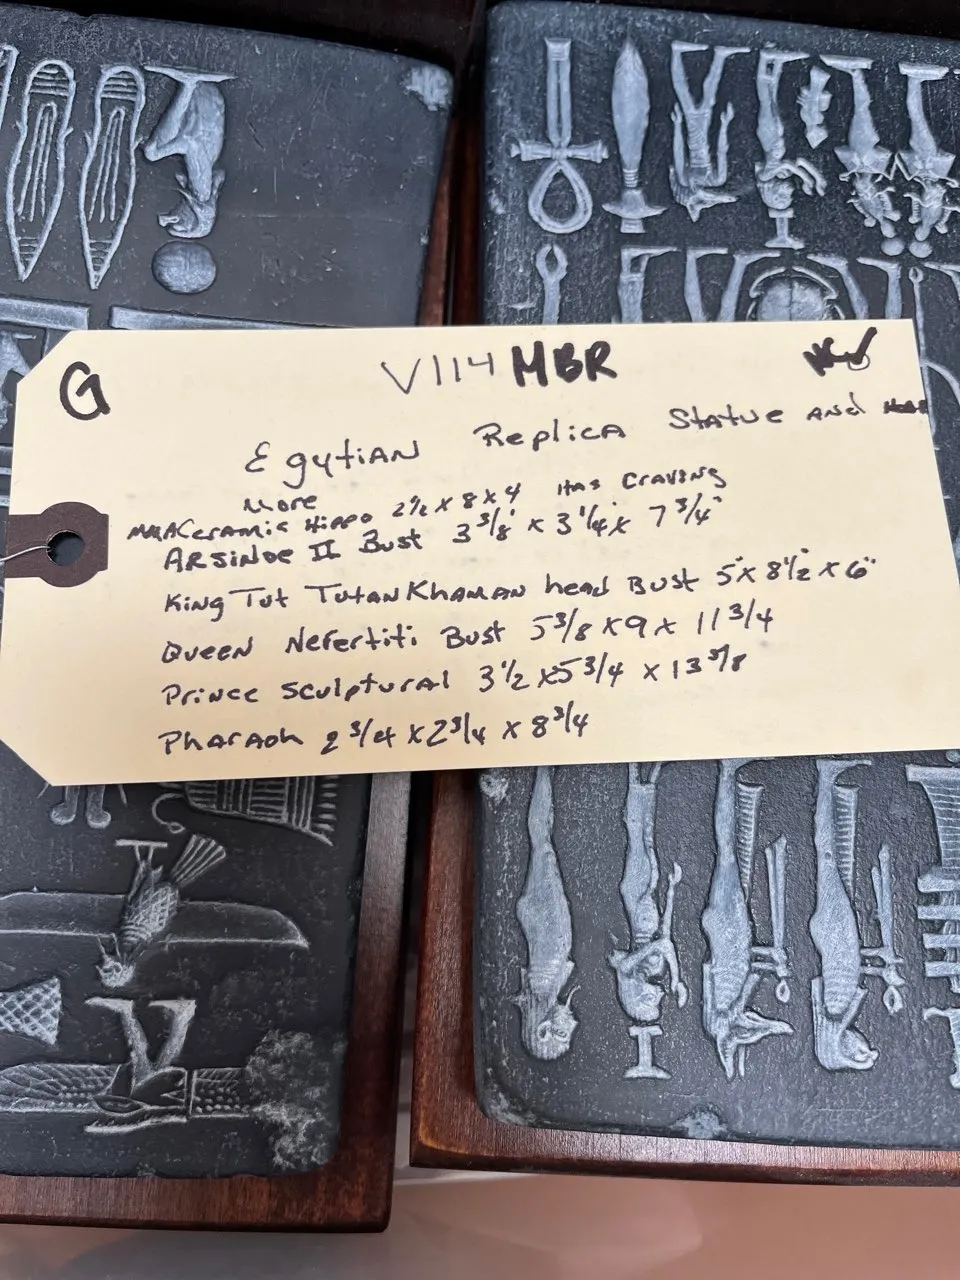 G
V114 MBR
Egytian Replica Statue and
More
MMA Ceramic Hippo 2½ x 8 x 4 Has Craving
Arsinoe II Bust 3 3/8" x 3 1/4" x 7 3/4"
King Tut TutanKhaman head Bust 5" x 8½" x 6"
Queen Nefertiti Bust 5 3/8 x 9 x 11 3/4
Prince Sculptural 3 1/2 x 5 3/4 x 13 3/8
Pharaoh 2 3/4 x 2 3/4 x 8 3/4